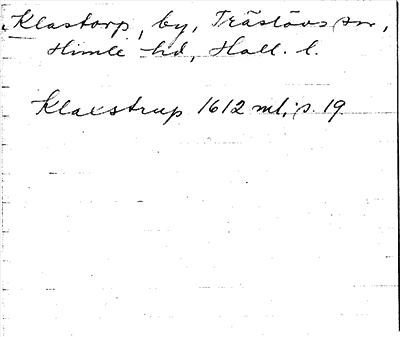 Klastorp, by, Träslövs sn,
Himle hd, Hall. l.
Klaestrup 1612 ml, s. 19